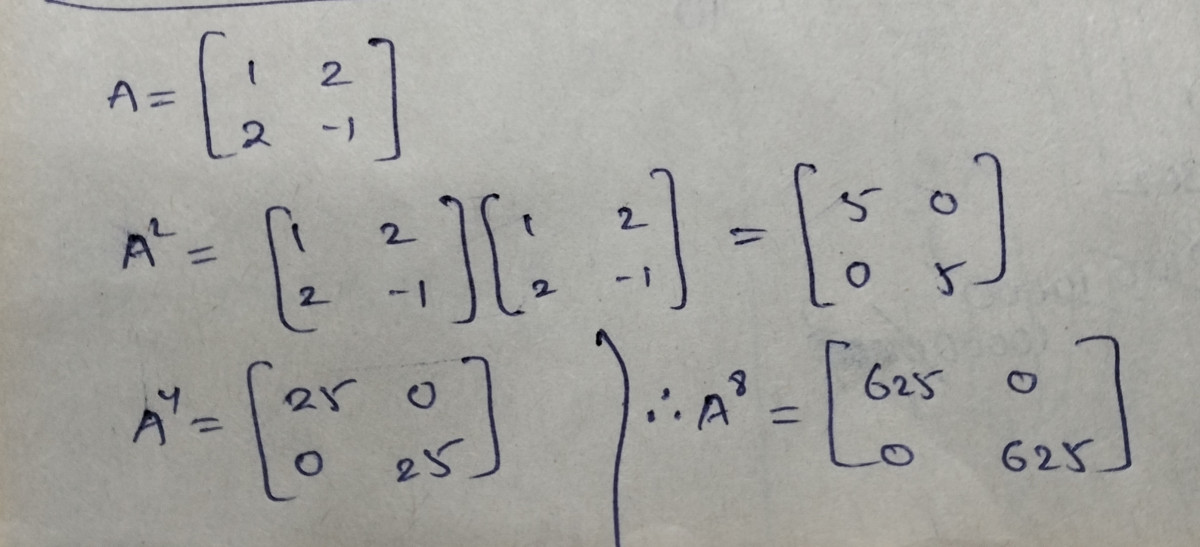 A = [1 2
2 -1]
A² = [1 2
2 -1] [1 2
2 -1] = [5 0
0 5]
A⁴ = [25 0
0 25]
∴ A⁸ = [625 0
0 625]